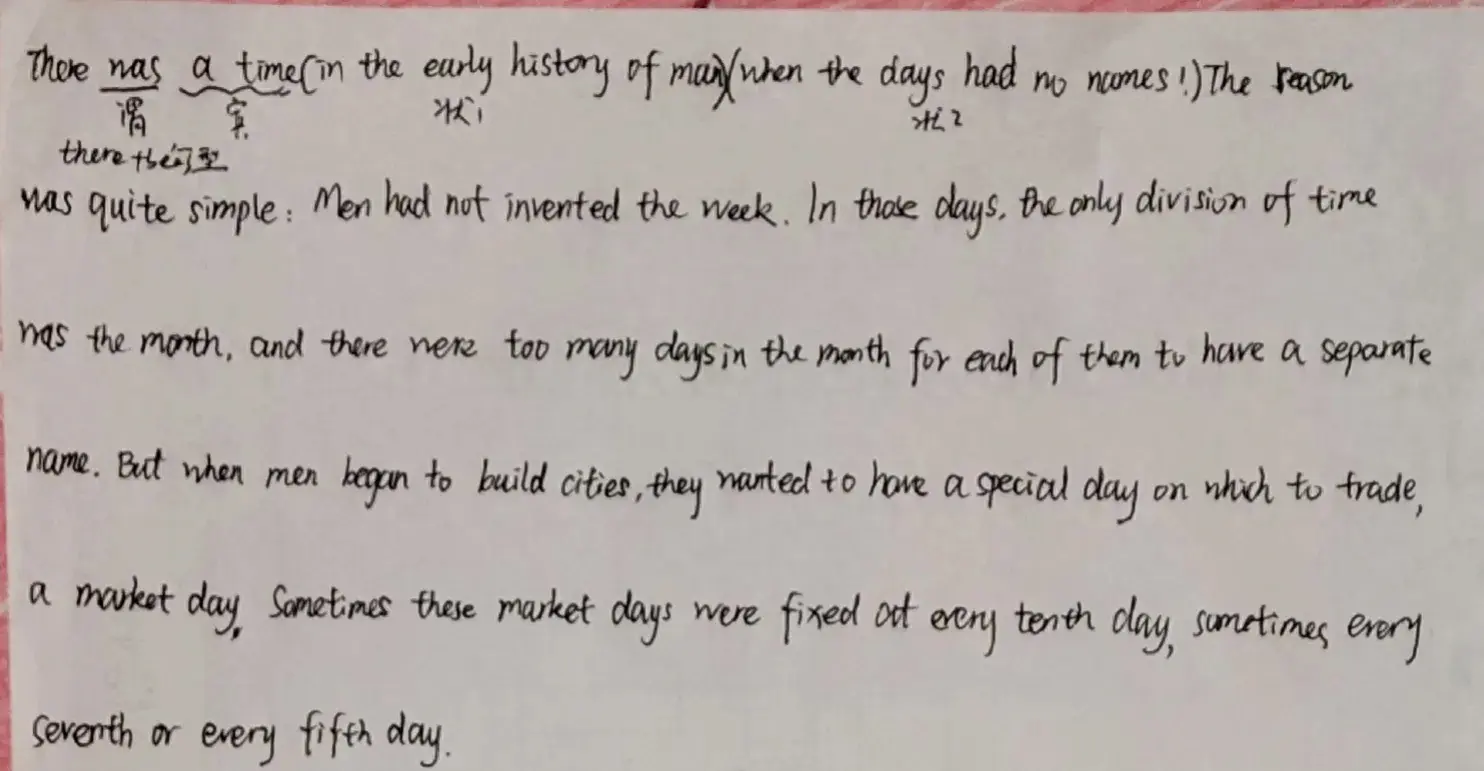 There was a time(in the early history of man)(when the days had no names!)The reason
谓 宾 状1 状2
there be句型
was quite simple: Men had not invented the week. In those days, the only division of time
was the month, and there were too many days in the month for each of them to have a separate
name. But when men began to build cities, they wanted to have a special day on which to trade,
a market day, Sometimes these market days were fixed at every tenth day, sometimes every
seventh or every fifth day.